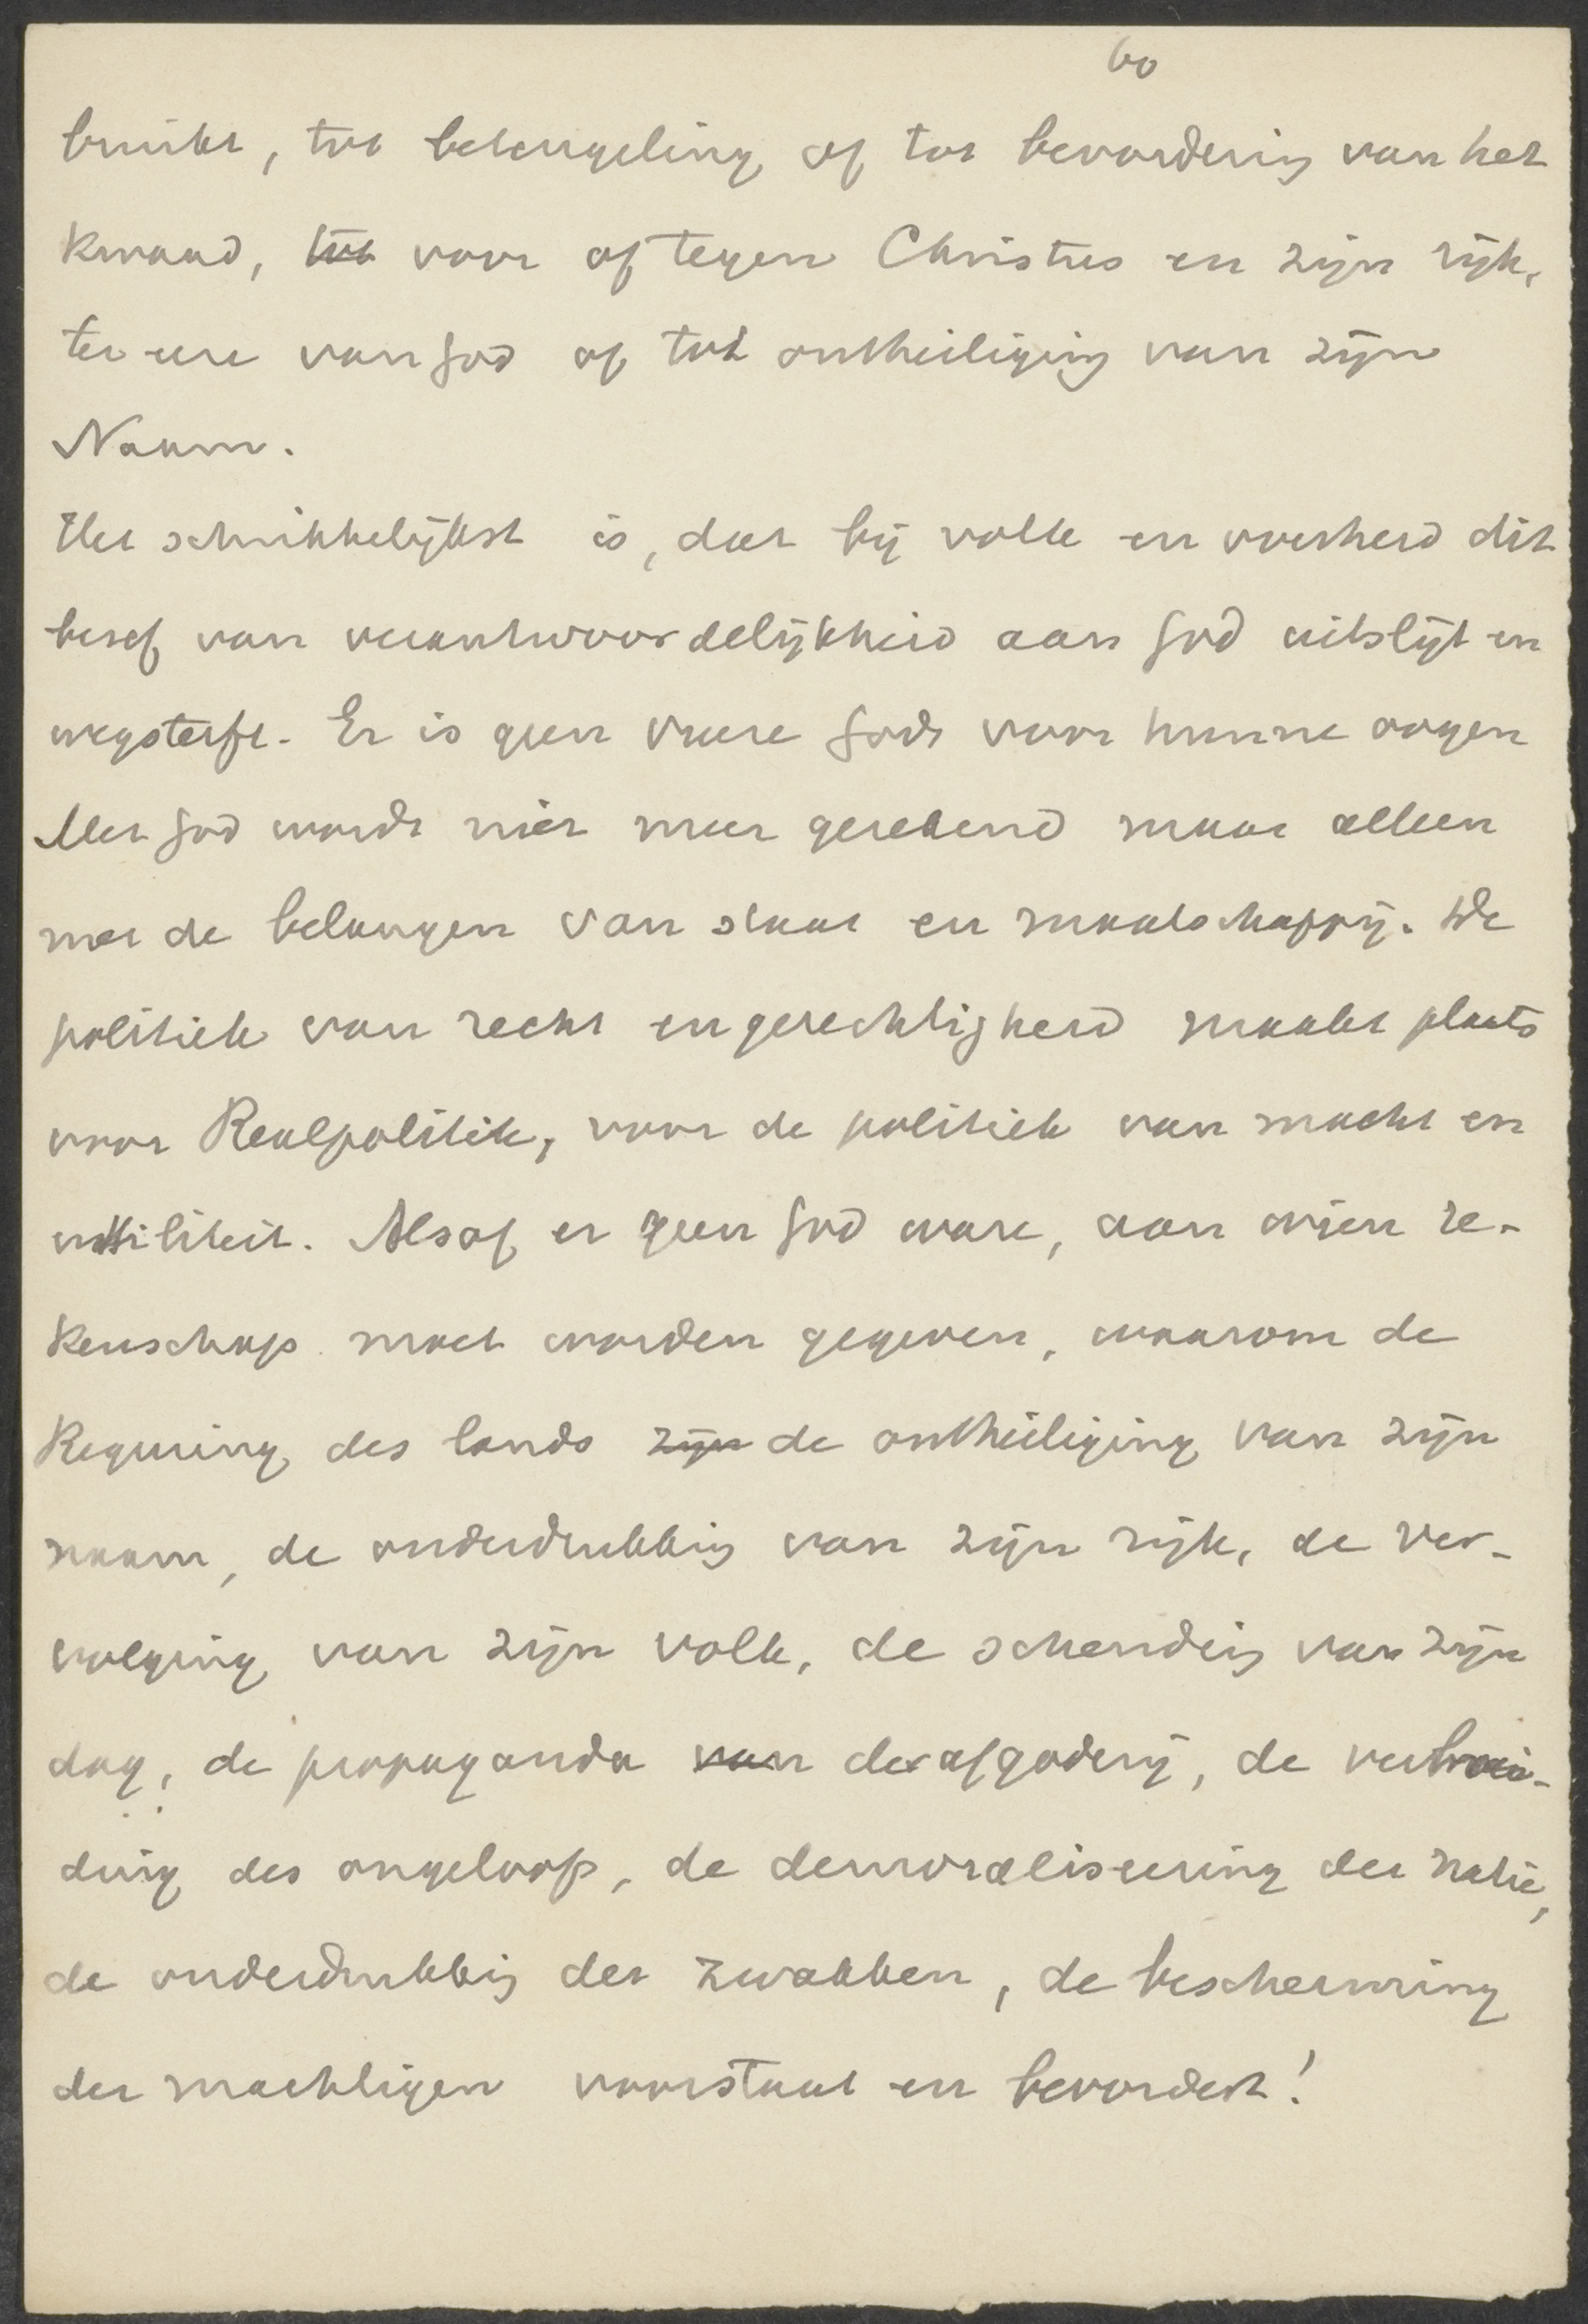 60
bruikt, tot beteugeling of tot bevordering van het
kwaad, tot voor of tegen Christus en zijn rijk,
ter eere van God of tot ontheiliging van zijn
Naam.
Het schrikkelijkst is, dat bij volk en overheid dit
besef van verantwoordelijkheid aan God uitslijt en
wegsterft. Er is geen vreeze Gods voor hunne oogen
Met God wordt niet meer gerekend maar alleen
met de belangen van staat en maatschappij. De
politiek van recht en gerechtigheid maakt plaats
voor Realpolitik, voor de politiek van macht en
utiliteit. Alsof er geen God ware, aan wien re-
kenschap moet worden gegeven, waarom de
Regeering des lands zijn de ontheiliging van zijn
naam, de onderdrukking van zijn rijk, de ver-
volging van zijn volk, de schending van zijn
dag, de propaganda van der afgoderij, de verbrei-
ding des ongeloofs, de demoraliseering der natie,
de onderdrukking der zwakken, de bescherming
der machtigen voorstaat en bevordert!